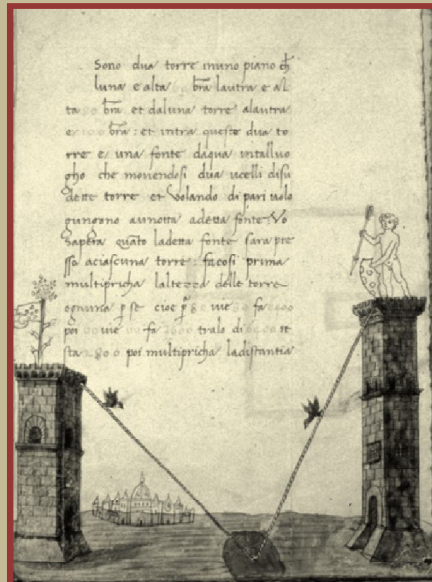 Sono dua torre in uno piano ch
luna e alta bra lautra e al
ta bra et da luna torre alautra
e bra: et intra queste dua to
rre e una fonte daqua intalluo
gho che movendosi dua ucelli disu
dette torre et volando di pari volo
gungono aunotta adetta fonte Vo
sapera quato ladetta fonte sara pre
sso aciascuna torre: fa cosi prima
multipricha laltezza delle torre
ognuna p se cioe vie fa
poi vie fa tralo di re
sta poi multipricha ladistantia